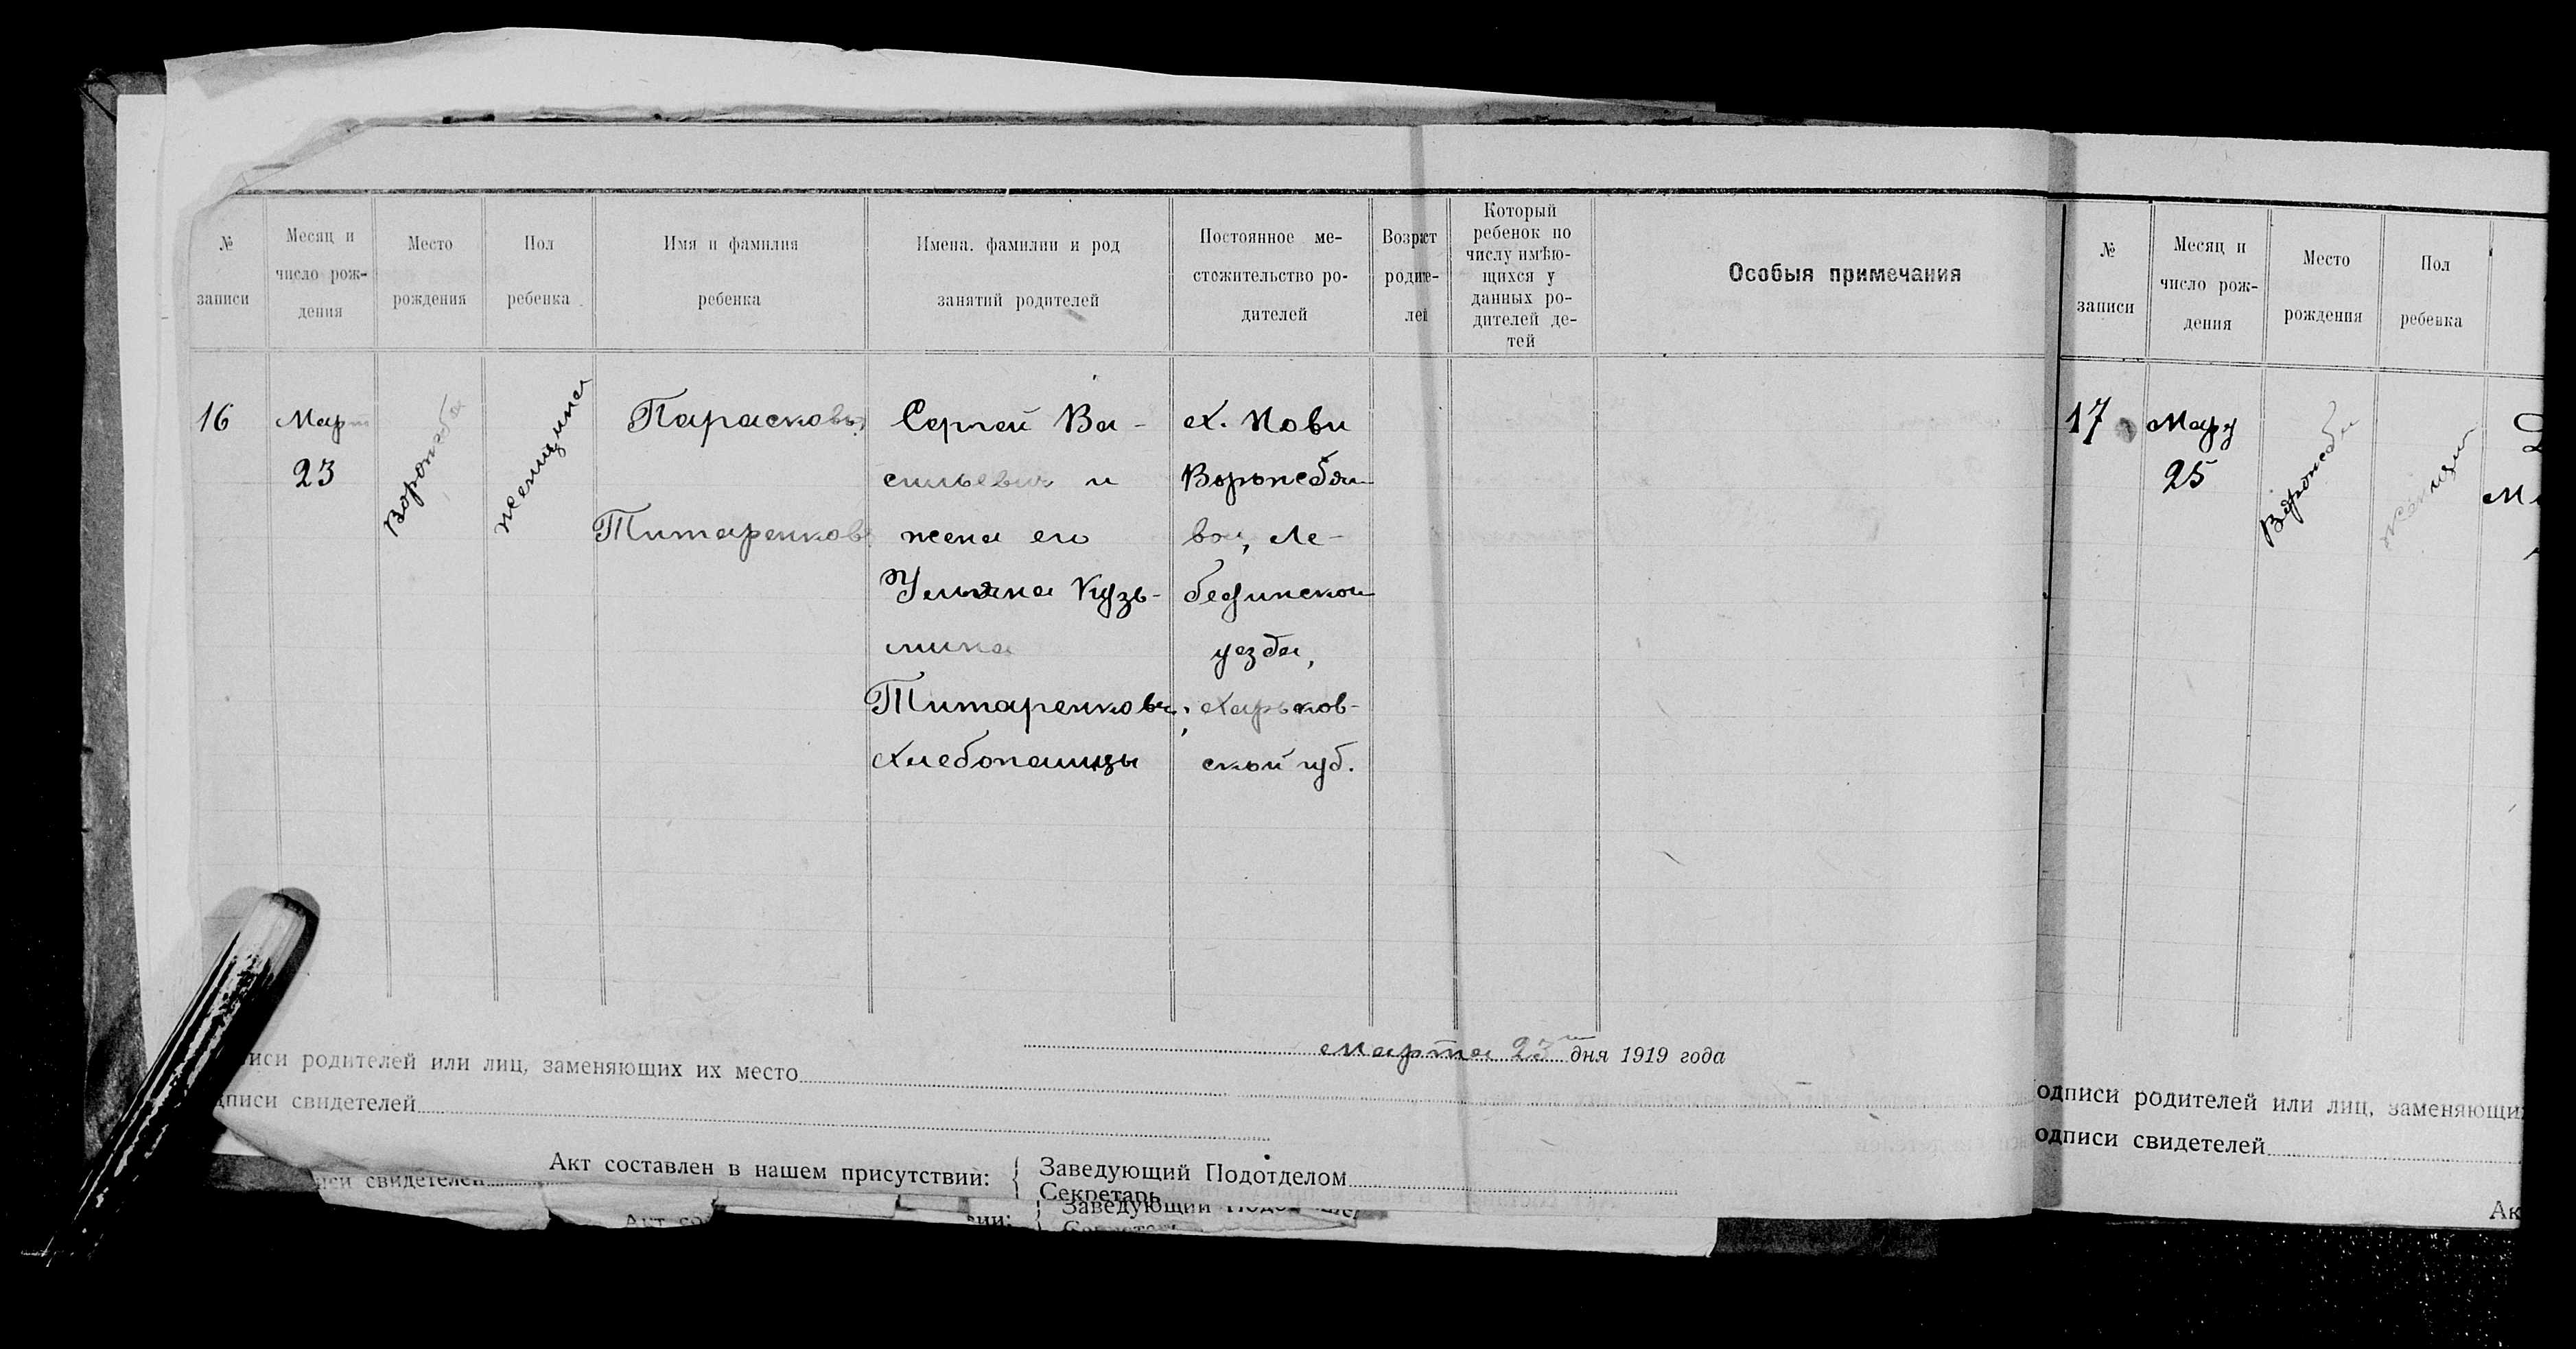 № записи
Месяц и число рождения
Место рождения
Пол ребенка
Имя и фамилия ребенка
Имена. фамилии и род занятий родителей
Постоянное местожительство родителей
Возраст родителей
Который ребенок по числу имѣющихся у данных родителей детей
Особыя примечания
16
Март
23
Ворожба
женщина
Парасковья
Титаренкова
Сергей Ва-
сильевич и
жена его
Ульяна Кузь-
мина
Титаренковы,
Хлебопашцы
х. Нови
Ворожбян
вой, Ле-
бединской
уезда,
Харьков-
ской губ.
марта 23 дня 1919 года
писи родителей или лиц, заменяющих их место
дписи свидетелей
Акт составлен в нашем присутствии: { Заведующий Подотделом
Секретарь
писи свидетелей
Заведующий
№ записи
Месяц и число рождения
Место рождения
Пол ребенка
17
Март
25
Ворожба
женщин
одписи родителей или лиц, заменяющи
одписи свидетелей
Ак